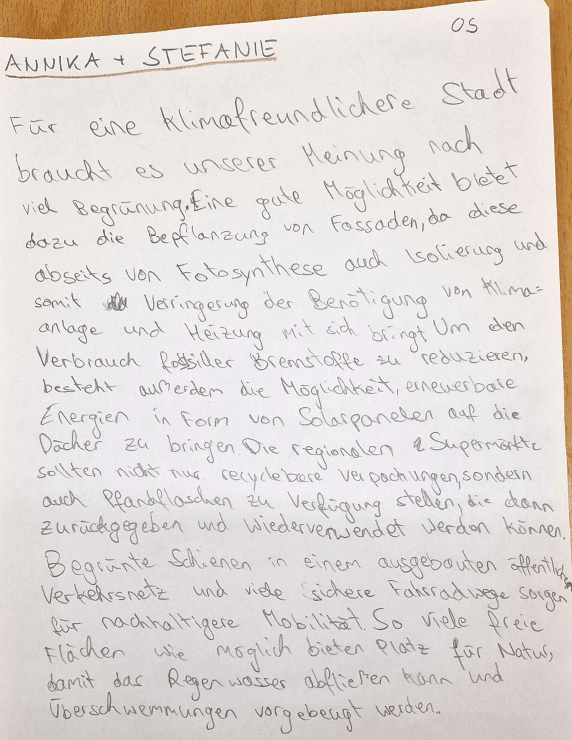 05
ANNIKA + STEFANIE
Für eine klimafreundlichere Stadt
braucht es unserer Meinung nach
viel Begrünung. Eine gute Möglichkeit bietet
dazu die Bepflanzung von Fassaden, da diese
abseits von Fotosynthese auch Isolierung und
somit Verringerung der Benötigung von Klima=
anlage und Heizung mit sich bringt. Um den
Verbrauch fossiller Bremstoffe zu reduzieren,
besteht außerdem die Möglichkeit, erneuerbare
Energien in Form von Solarpanelen auf die
Dächer zu bringen. Die regionalen Supermärkte
sollten nicht nur recyclebare Verpackungen, sondern
auch Pfandflaschen zu Verfügung stellen, die dann
zurückgegeben und wiederverwendet werden können.
Begrünte Schienen in einem ausgebauten öffentlichen
Verkehrsnetz und viele sichere Fahrradwege sorgen
für nachhaltigere Mobilität. So viele freie
Flächen wie möglich bieten Platz für Natur,
damit das Regenwasser abfließen kann und
Überschwemmungen vorgebeugt werden.